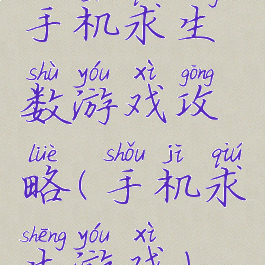 手机求生
shù yóu xì gōng
数游戏攻
lüè shǒu jī qiú
略(手机求
shēng yóu xì
生游戏)